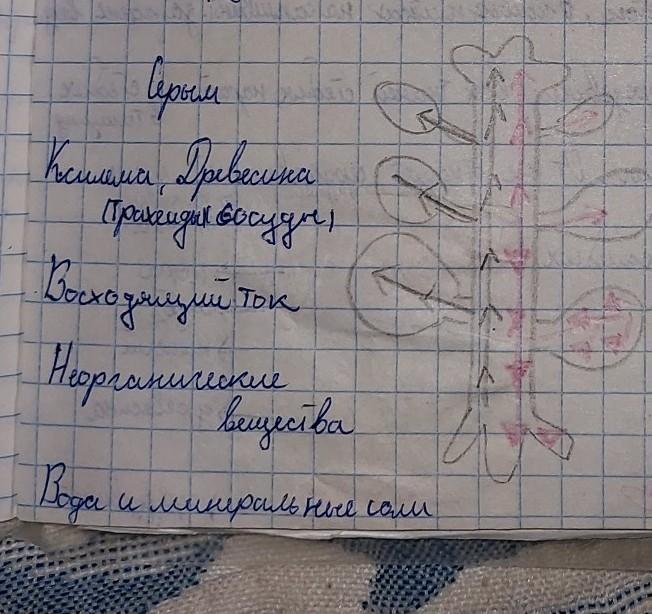 Серым
Ксилема, Древесина
(Трахеиды сосуды)
Восходящий ток
Неорганические
вещества
Вода и минеральные соли